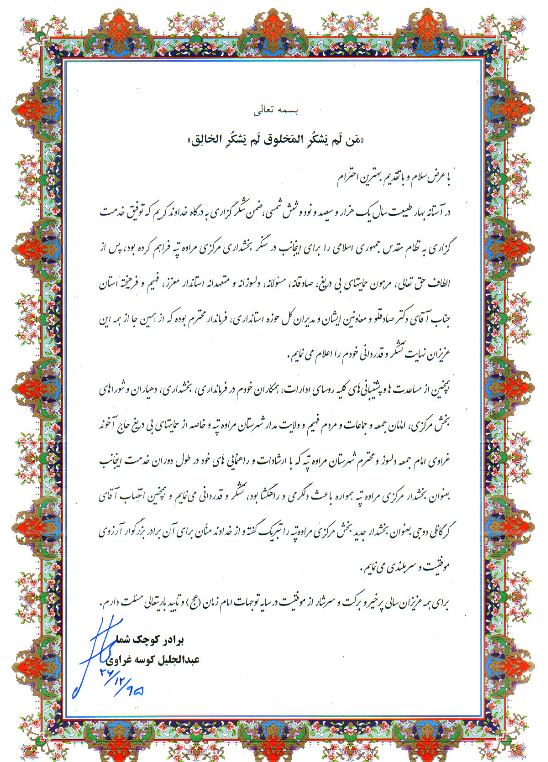 بسمه تعالی
«مَن لَم یَشکُرِ المَخلوق لَم یَشکُرِ الخالِق»
با عرض سلام و با تقدیم بهترین احترام
در آستانه بهار طبیعت سال یک هزار و سیصد و نود و شش شمسی، ضمن شکر گزاری به درگاه خداوند کریم که توفیق خدمت
گزاری به نظام مقدس جمهوری اسلامی را برای اینجانب در سنگر بخشداری مرکزی مراوه تپه فراهم کرده بود، پس از
الطاف حق تعالی، مرهون حمایتهای بی دریغ، صادقانه، مسئولانه، دلسوزانه و متعهدانه استاندار معزز، فهیم و فرهیخته استان
جناب آقای دکتر صادقلو و معاونین ایشان و مدیران کل حوزه استانداری، فرماندار محترم بوده که از همین جا از همه این
عزیزان نهایت تشکر و قدردانی خودم را اعلام می نمایم.
همچنین از مساعدت ها و پشتیبانی های کلیه روسای ادارات، همکاران خودم در فرمانداری، بخشداری، دهیاران و شوراهای
بخش مرکزی، امامان جمعه و جماعات و مردم فهیم و ولایت مدار شهرستان مراوه تپه و خاصه از حمایتهای بی دریغ حاج آخوند
غراوی امام جمعه دلسوز و محترم شهرستان مراوه تپه که با ارشادات و راهنمایی های خود در طول دوران خدمت اینجانب
بعنوان بخشدار مرکزی مراوه تپه همواره باعث دلگرمی و راهگشا بود، تشکر و قدردانی می نمایم و همچنین انتصاب آقای
کر کاملی دوجی بعنوان بخشدار جدید بخش مرکزی مراوه تپه را تبریک گفته و از خداوند منّان برای آن برادر بزرگوار آرزوی
موفقیت و سربلندی می نمایم.
برای همه عزیزان سالی پر خیر و برکت و سرشار از موفقیت در سایه توجهات امام زمان (عج) و تایید باریتعالی مسئلت دارم.
برادر کوچک شما
عبدالجلیل کوسه غراوی
۲۶/۱۲/۹۵